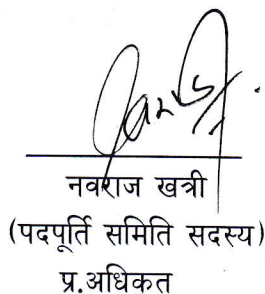 नवराज खत्री
(पदपूर्ति समिति सदस्य)
प्र.अधिकत